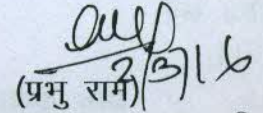 (प्रभु राम) 2/3/16